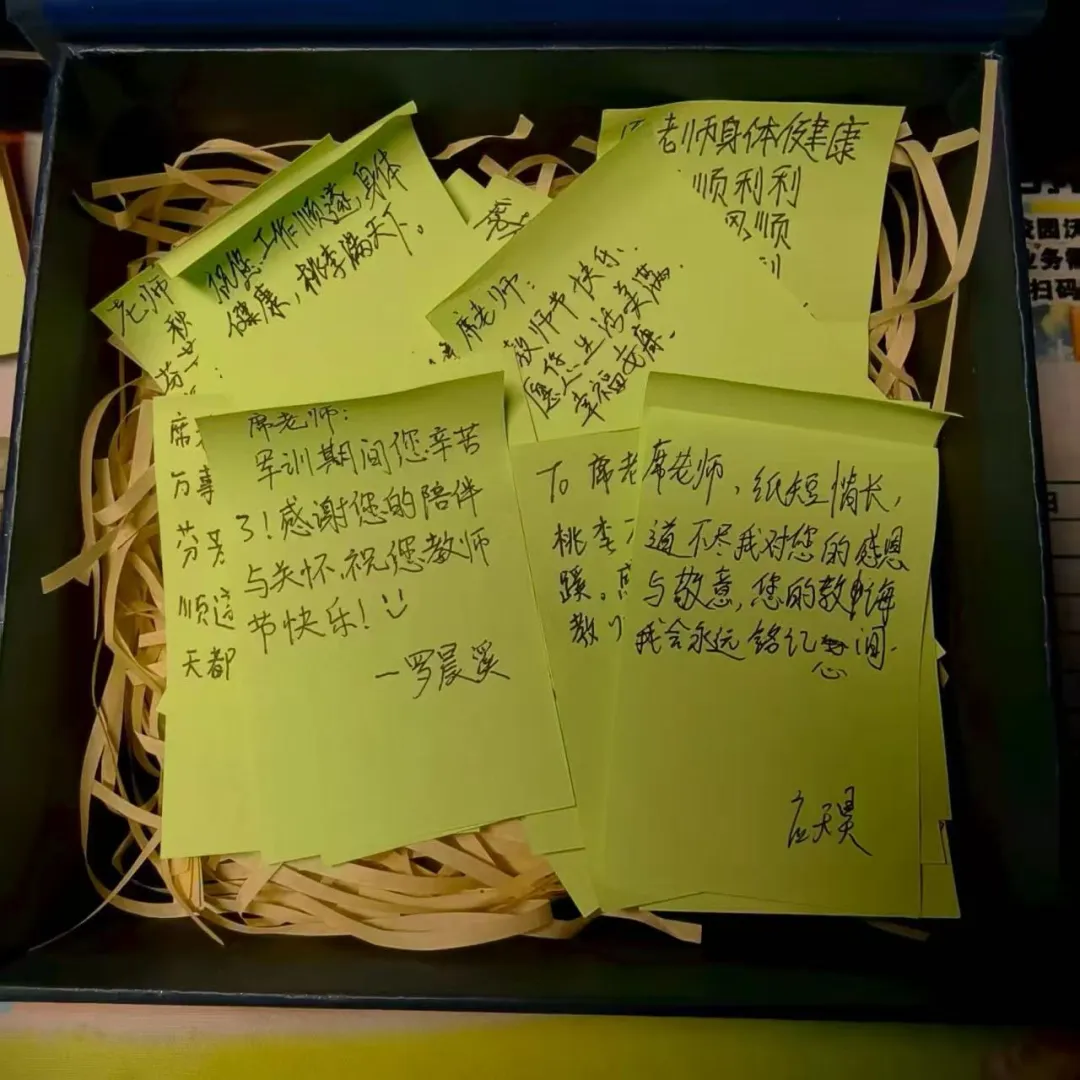 祝您工作顺遂,身体
健康,桃李满天下。
老师
秋
老师身体健康
顺利利
顺
席老师:
教师节快乐.
愿您生活美满.
幸福安康.
席老师:
军训期间您辛苦
了!感谢您的陪伴
与关怀.祝您教师
节快乐!
—罗晨溪
席
万事
芬芳
顺遂
天都
To 席老
桃李
蹊。
教
席老师,纸短情长,
道不尽我对您的感恩
与敬意,您的教诲
我会永远铭记心间.
应天昊
校园沃
业务需
扫码